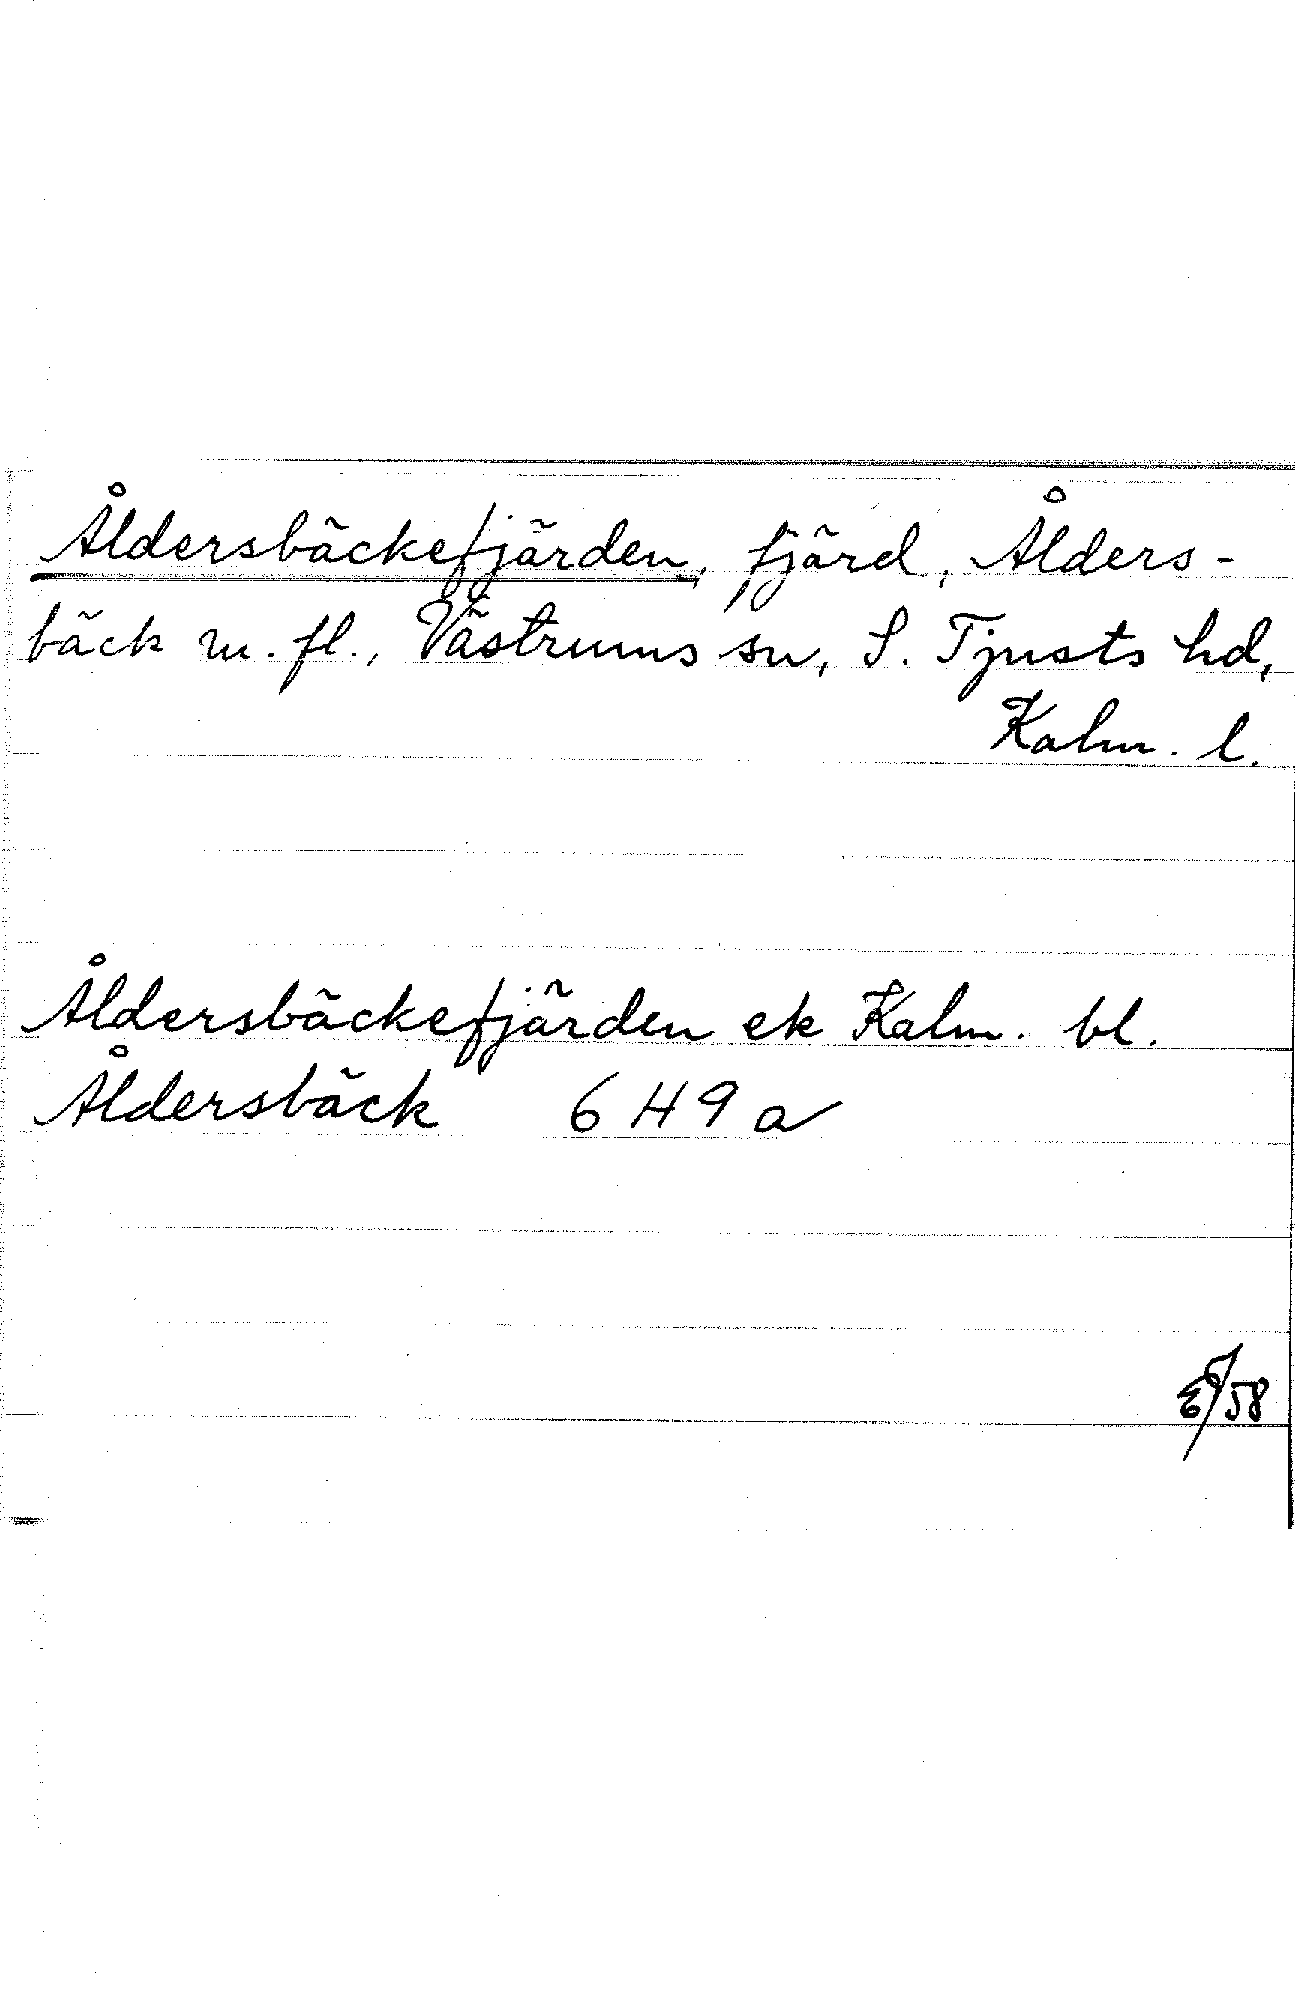 Åldersbäckefjärden, fjärd, Ålders-
bäck m. fl., Västrums sn, S. Tjusts hd,
Kalm. l.
Åldersbäckefjärden ek Kalm. bl.
Åldersbäck 6 H 9 a
/58